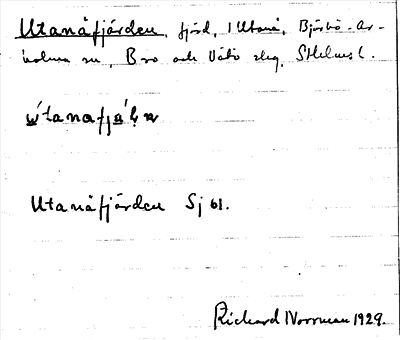 Utanåfjärden, fjärd, i Utanå, Björkö-Ar-
holma sn, Bro och Vätö skg, Sthlms l.
Utanåfjärden Sj 61.
Richard Norrman 1929.